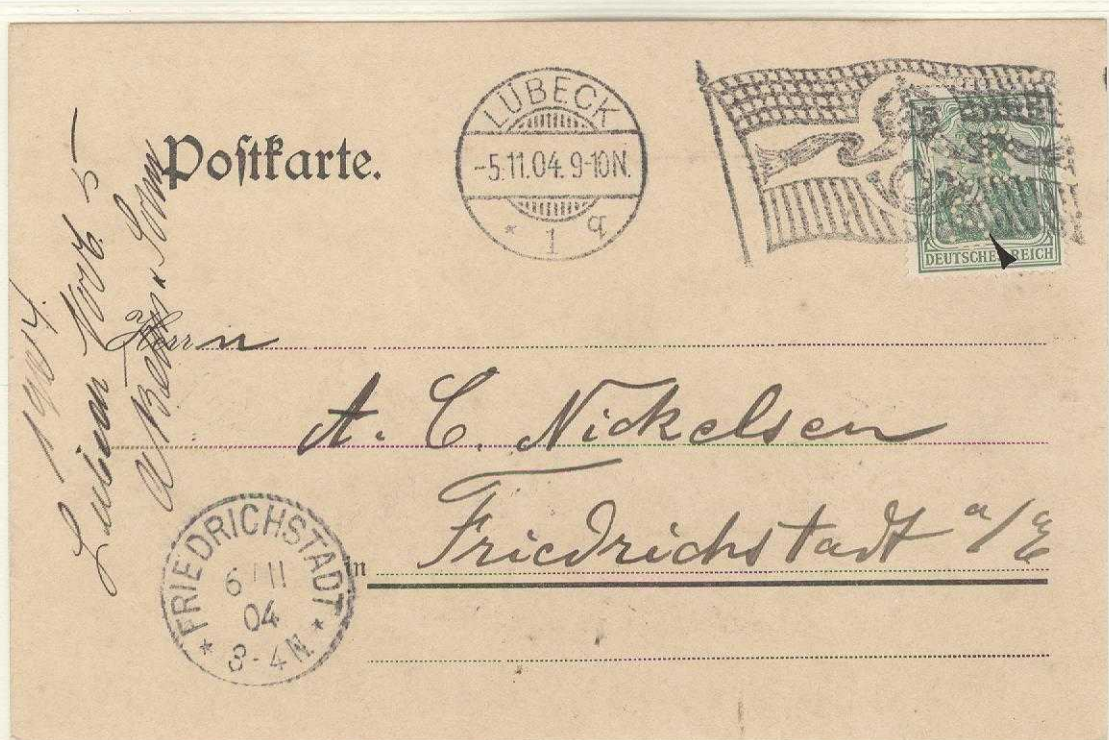 Postkarte.
LÜBECK
-5.11.04. 9-10N.
* 1 q
DEUTSCHES REICH
1904.
Nov. 5
Herrn
A. C. Nickelsen
in Friedrichstadt a/E
FRIEDRICHSTADT
6/11
04
3-4N
* *